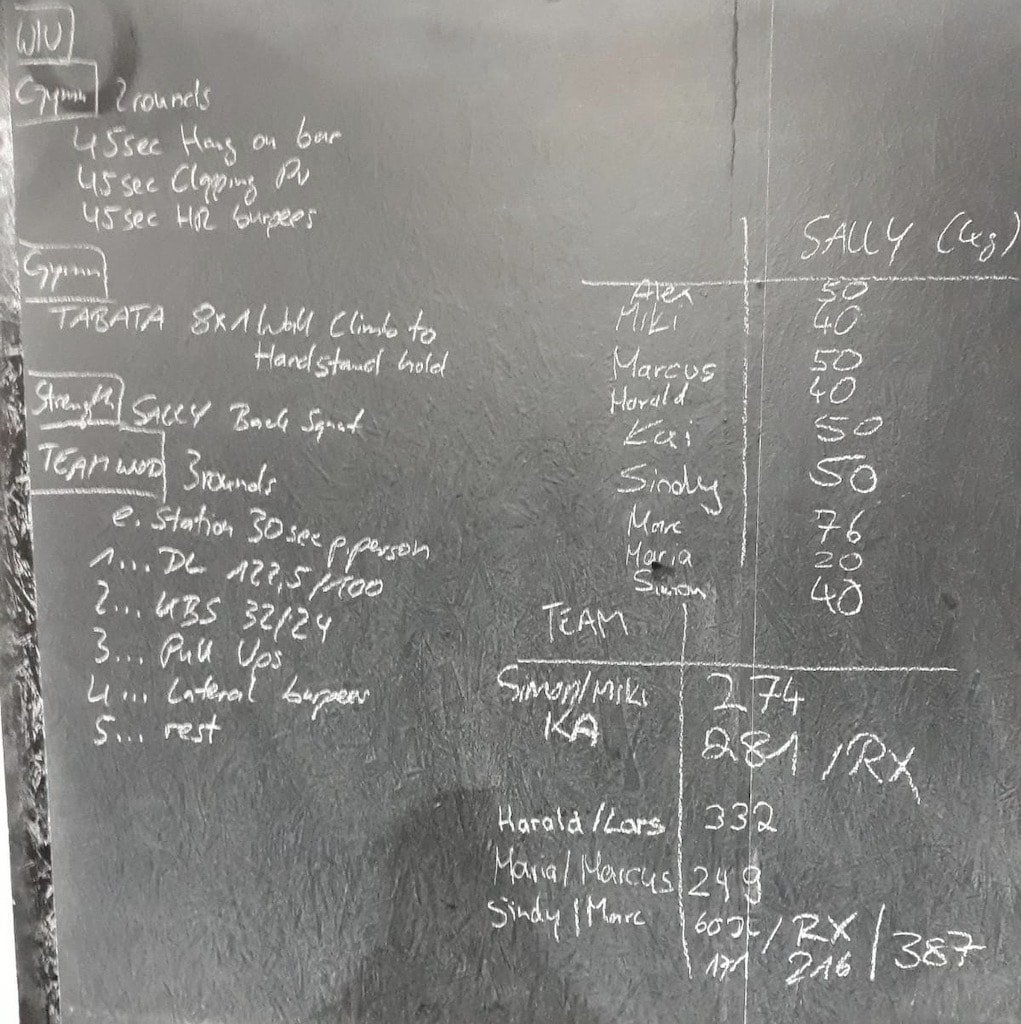 W/U
Gymn 2 rounds
45sec Hang on bar
45sec Clapping PU
45sec HR burpees
Gymn
TABATA 8x1 Wall Climb to
Handstand hold
Strength SALLY Back Squat
TEAM WOD 3 rounds
e. Station 30sec p. person
1... DL 122,5/100
2... KBS 32/24
3... Pull Ups
4... Lateral burpees
5... rest
SALLY (kg)
Alex 50
Miki 40
Marcus 50
Harald 40
Kai 50
Sindy 50
Marc 76
Maria 20
Simon 40
TEAM
Simon/Miki 274
KA 281 /RX
Harald/Lars 332
Maria/Marcus 249
Sindy/Marc / RX / 387
171 216